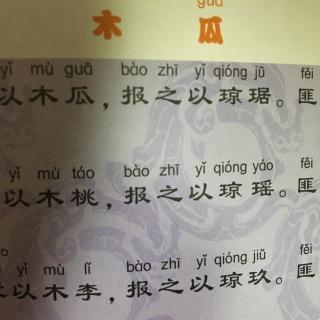 guā
木 瓜
yǐ mù guā bào zhī yǐ qióng jū fěi
以木瓜，报之以琼琚。匪
yǐ mù táo bào zhī yǐ qióng yáo fěi
以木桃，报之以琼瑶。匪
yǐ mù lǐ bào zhī yǐ qióng jiǔ fěi
以木李，报之以琼玖。匪